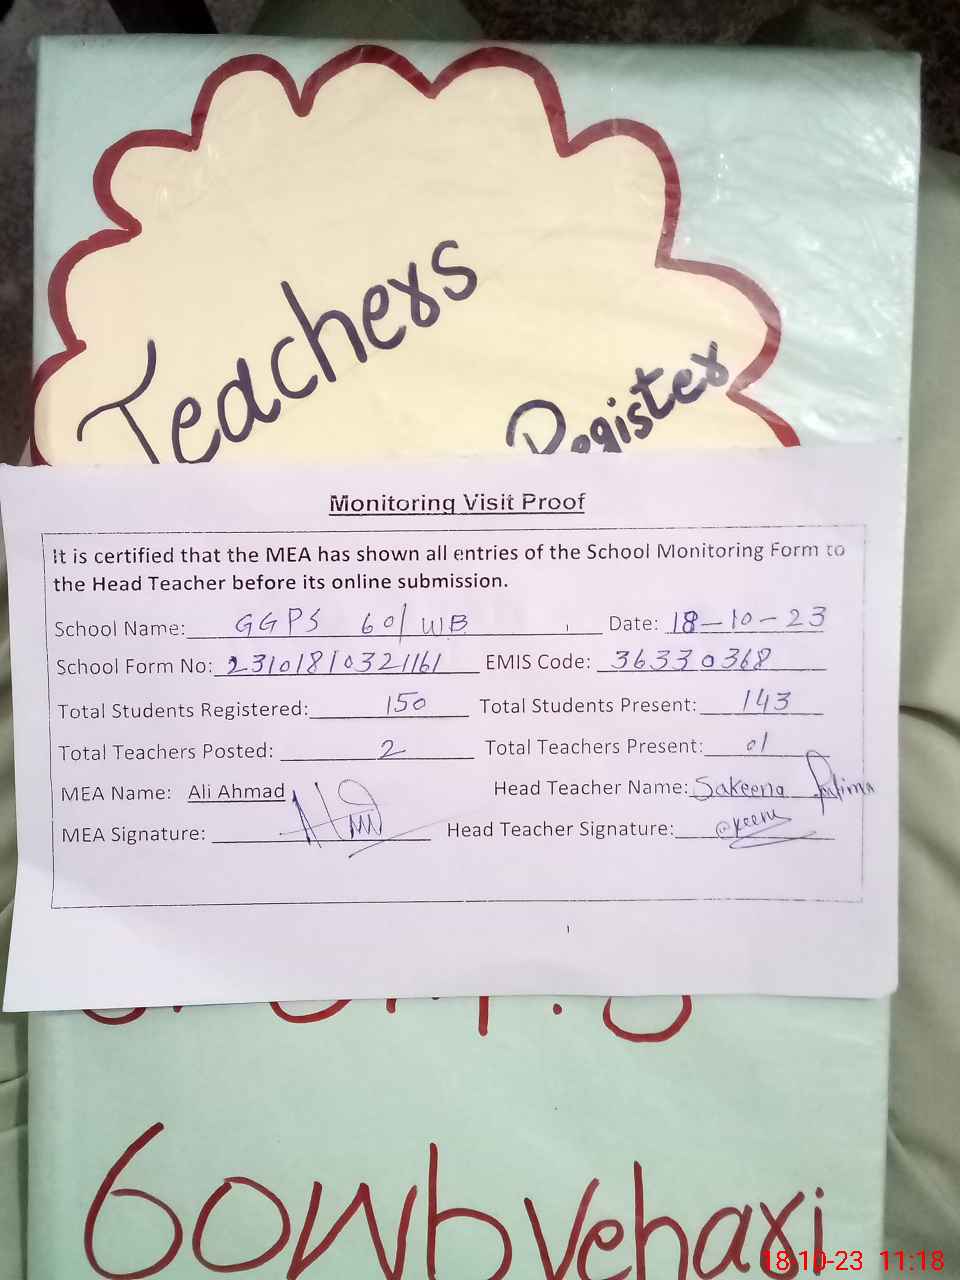 Teachers
Register
Monitoring Visit Proof
It is certified that the MEA has shown all entries of the School Monitoring Form to
the Head Teacher before its online submission.
School Name: GGPS 60/WB Date: 18-10-23
School Form No: 23101810321161 EMIS Code: 36330368
Total Students Registered: 150 Total Students Present: 143
Total Teachers Posted: 2 Total Teachers Present: 01
MEA Name: Ali Ahmad Head Teacher Name: Sakeena Fatima
MEA Signature: Head Teacher Signature:
60wb vehari
18-10-23 11:18